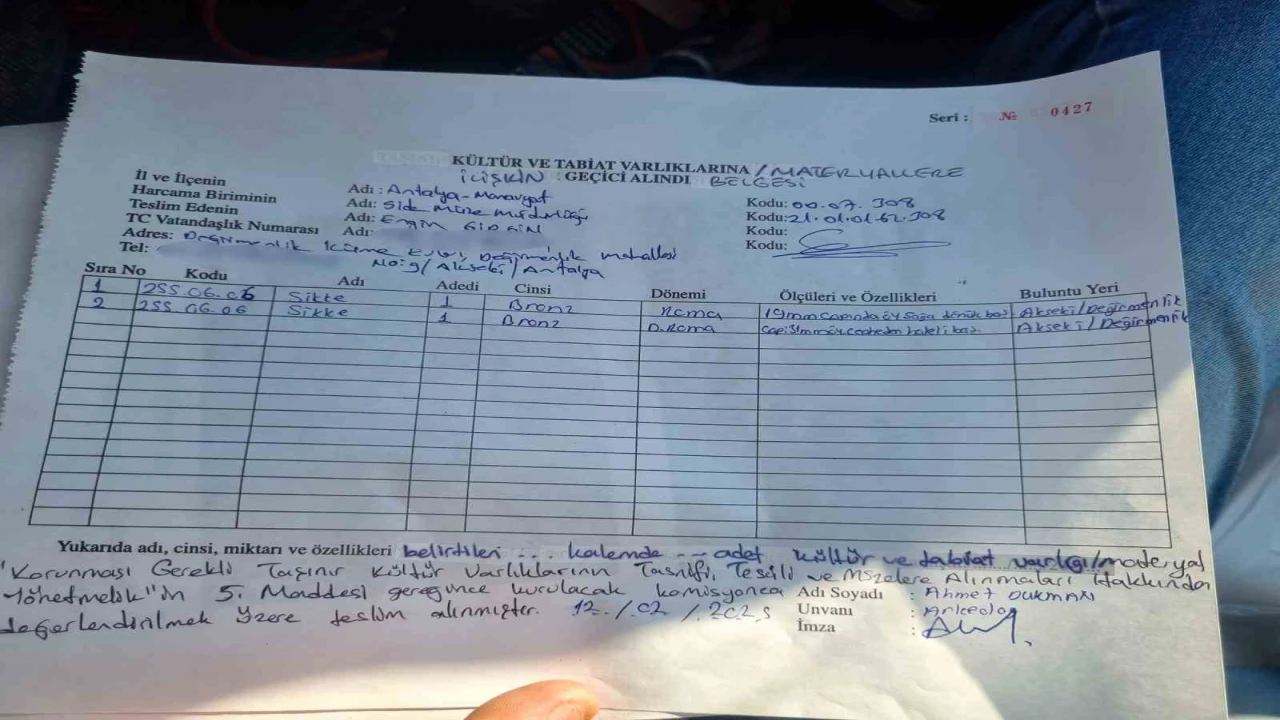 Seri : № 0427
KÜLTÜR VE TABİAT VARLIKLARINA / MATERYALLERE
İLİŞKİN GEÇİCİ ALINDI BELGESİ
İl ve İlçenin Adı : Antalya - Manavgat Kodu: 00.07.308
Harcama Biriminin Adı: Side Müze Müdürlüğü Kodu: 21.01.01.62.308
Teslim Edenin Adı: Engin Kodu:
TC Vatandaşlık Numarası Adı: Kodu:
Adres: Değirmenlik Küme Evler, Değirmenlik mahallesi
Tel: No:9/Akseki/Antalya
Sıra No Kodu Adı Adedi Cinsi Dönemi Ölçüleri ve Özellikleri Buluntu Yeri
1 255.06.06 Sikke 1 Bronz Roma 19mm çapında öy sağa dönük baş Akseki/Değirmenlik
2 255.06.06 Sikke 1 Bronz D.Roma Akseki/Değirmenlik
Yukarıda adı, cinsi, miktarı ve özellikleri belirtilen ... kalemde ... adet kültür ve tabiat varlığı/materyal
"Korunması Gerekli Taşınır Kültür Varlıklarının Tasnifi, Tescili ve Müzelere Alınmaları Hakkında
Yönetmelik"in 5. Maddesi gereğince kurulacak komisyonca Adı Soyadı : Ahmet
değerlendirilmek üzere teslim alınmıştır. 12/02/2025 Unvanı : Arkeolog
İmza :